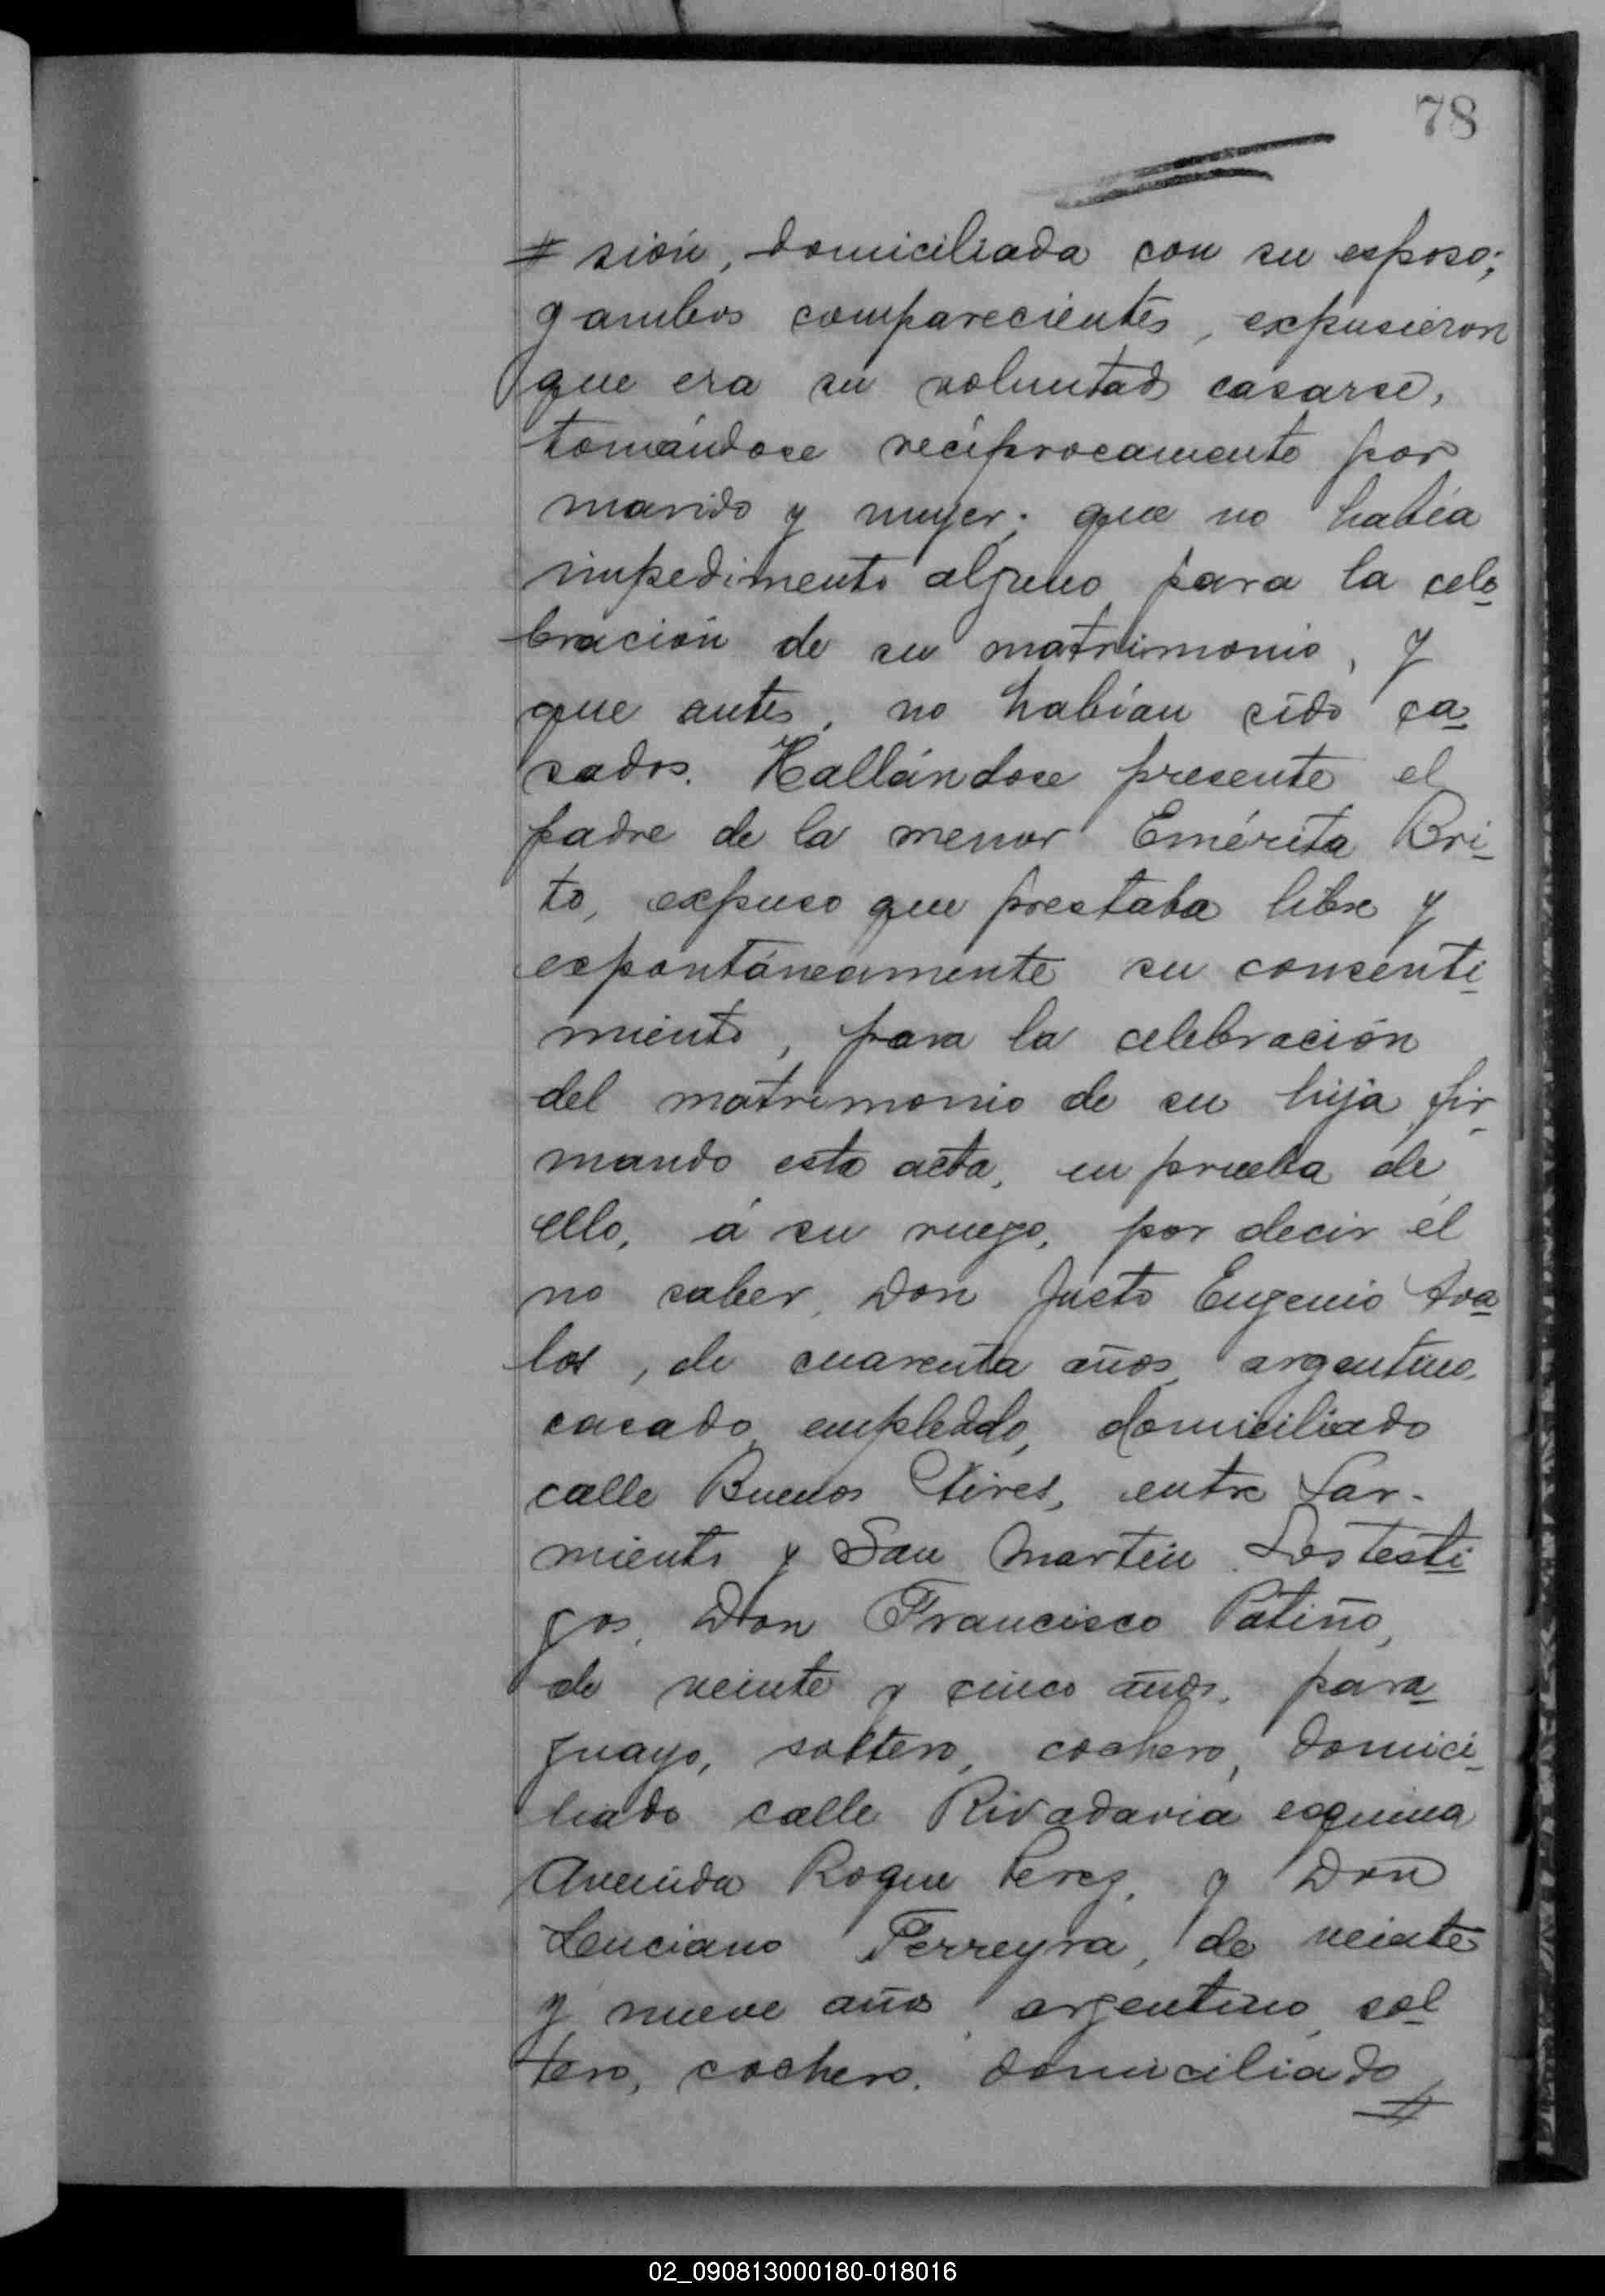 78
# sión, domiciliada con su esposo;
y ambos comparecientes, expusieron
que era su voluntad casarse,
tomándose recíprocamente por
marido y mujer; que no había
impedimento alguno para la cele
bración de su matrimonio, y
que antes, no habían sido ca
sados. Hallándose presente el
padre de la menor Emérita Bri
to, expuso que prestaba libre y
espontáneamente su consenti
miento, para la celebración
del matrimonio de su hija, fir
mando esta acta, en prueba de
ello, á su ruego, por decir él
no saber, Don Justo Eugenio Ava
los, de cuarenta años, argentino,
casado, empleado, domiciliado
calle Buenos Aires, entre Sar-
miento y San Martín. Los testi
gos, Don Francisco Patiño,
de veinte y cinco años, para
guayo, soltero, cochero, domici
liado calle Rivadavia esquina
Avenida Roque Perez, y Don
Luciano Ferreyra, de veinte
y nueve años, argentino, sol
tero, cochero, domiciliado
#
02_090813000180-018016